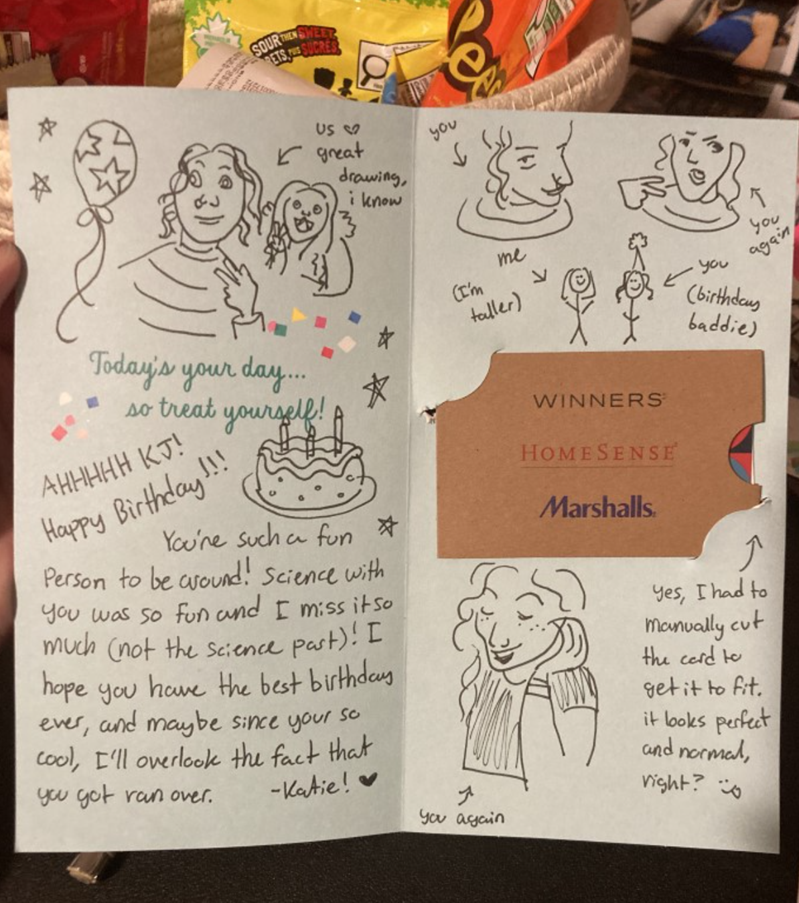 SOUR THEN SWEET
SURETS, PUIS SUCRÉS
Reese
us ♡
great
drawing,
i know
Today's your day...
so treat yourself!
AHHHHH KJ!
Happy Birthday!!!
You're such a fun
Person to be around! Science with
you was so fun and I miss it so
much (not the science part)! I
hope you have the best birthday
ever, and maybe since your so
cool, I'll overlook the fact that
you got ran over. -Katie! ♥
you
you
again
me
(I'm
taller)
you
(birthday
baddie)
WINNERS®
HOMESENSE®
Marshalls®
you again
yes, I had to
manually cut
the card to
get it to fit.
it looks perfect
and normal,
right? :)